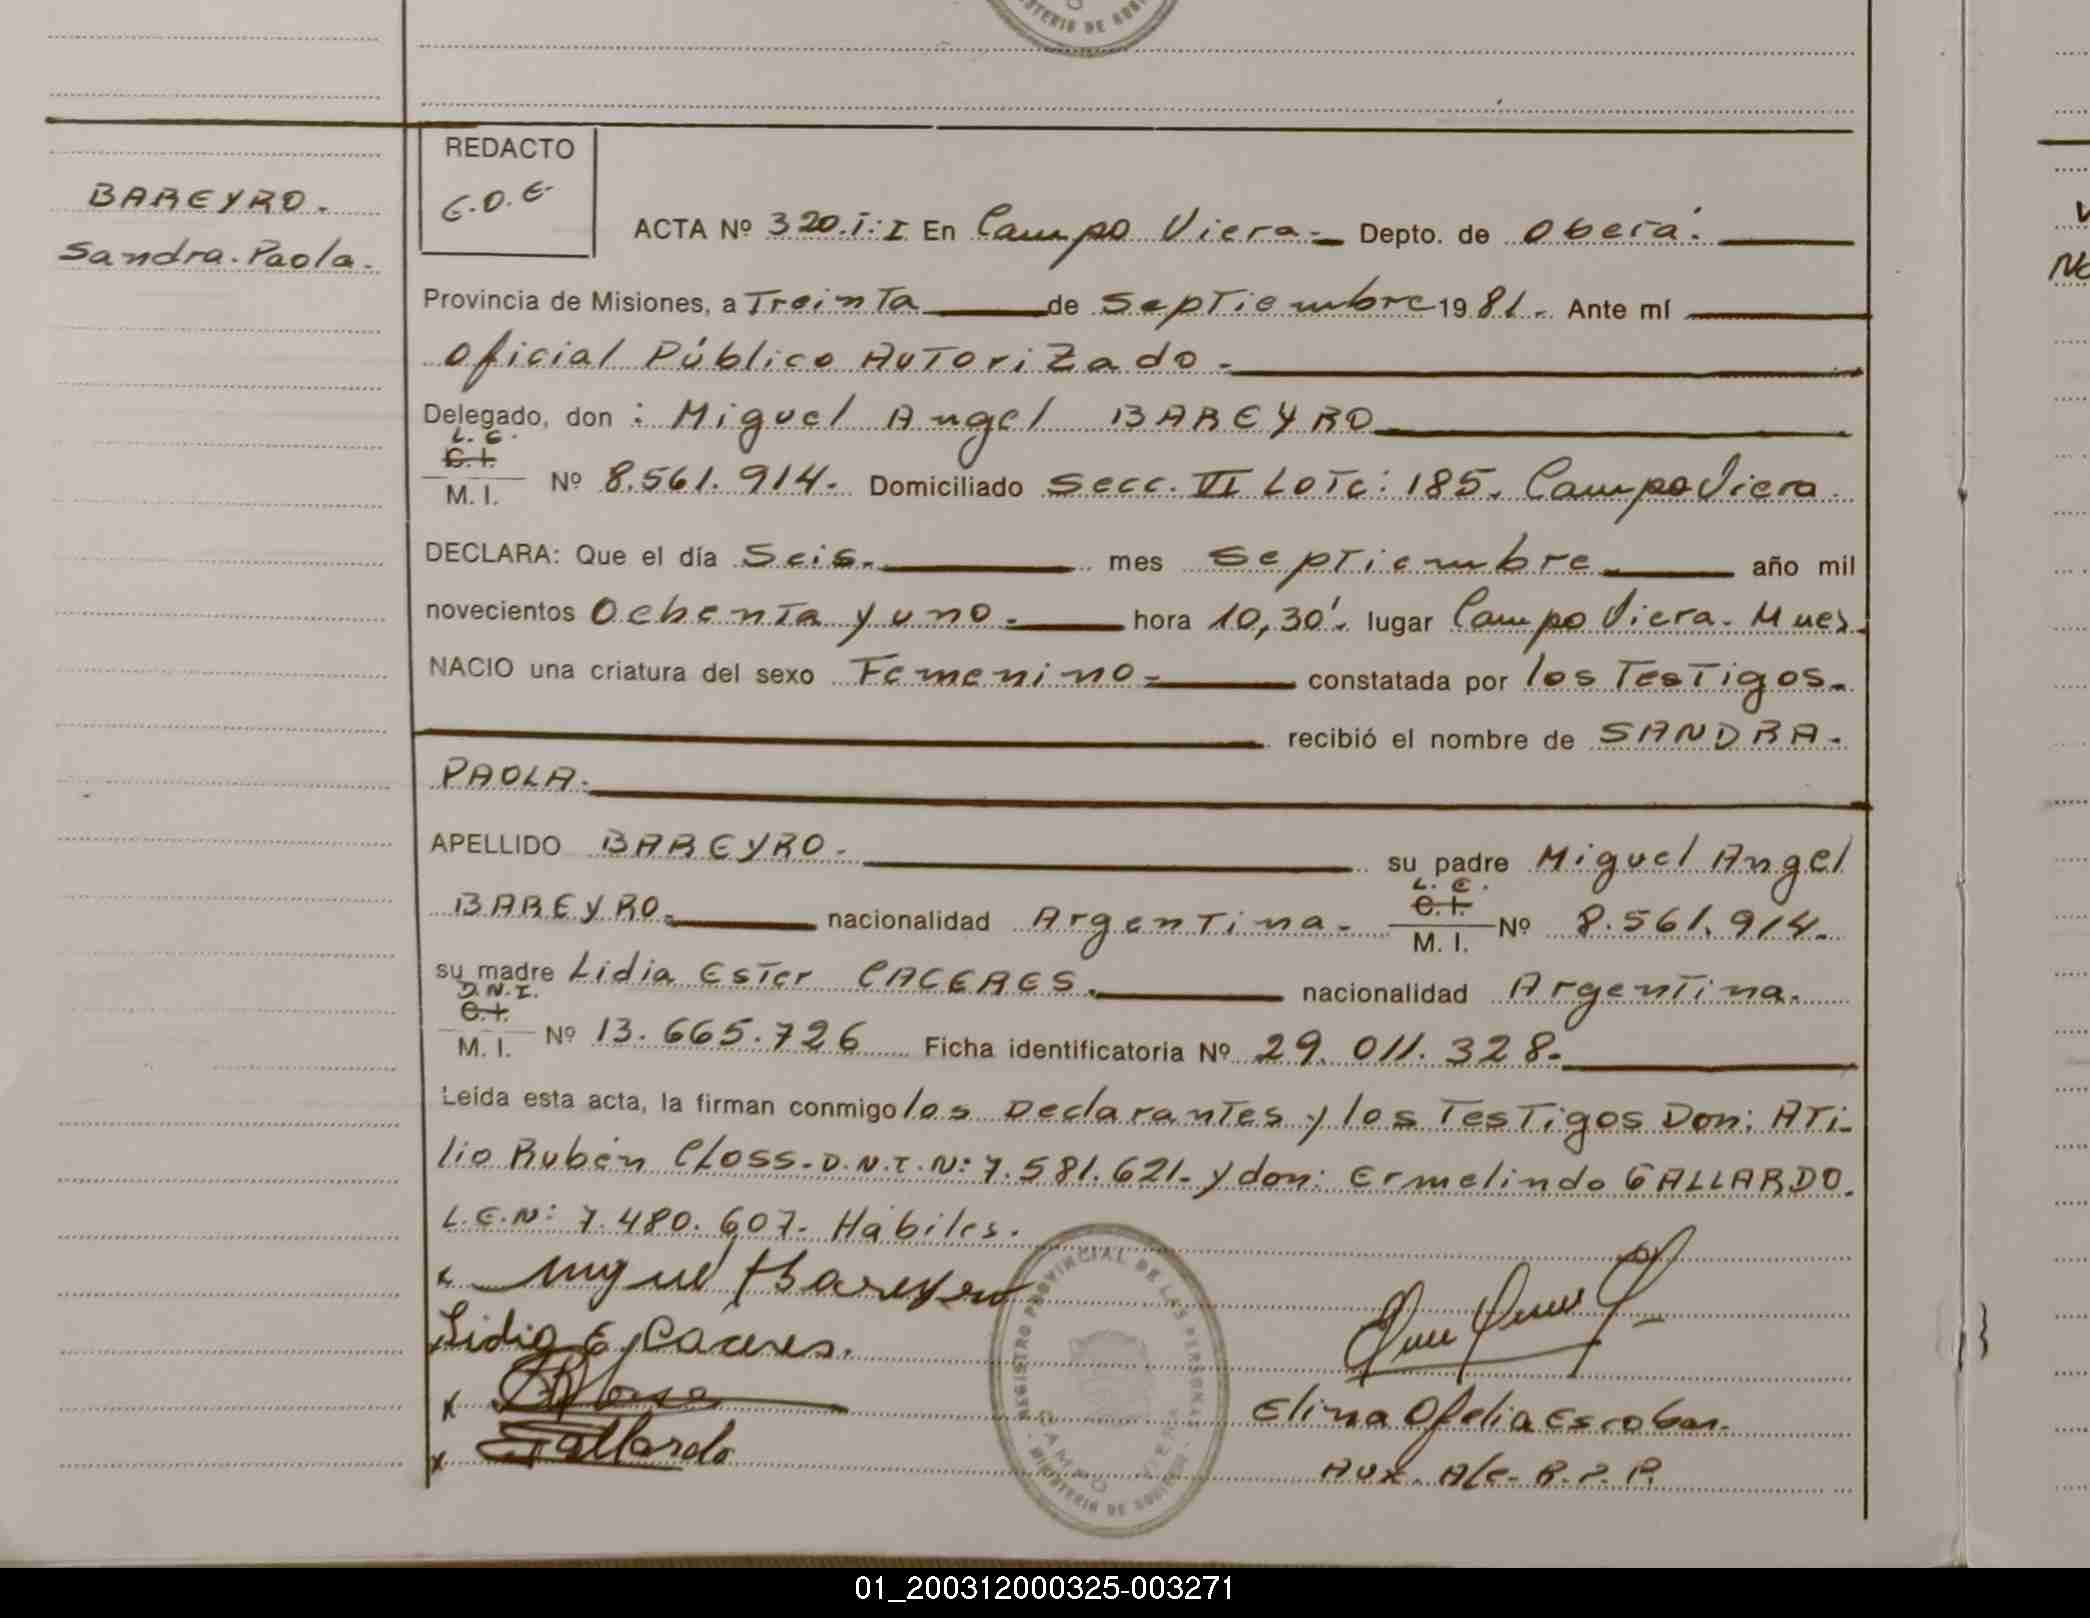 MINISTERIO DE GOBIERNO
BAREYRO.
Sandra.Paola.
REDACTO
E.O.E
ACTA Nº 320.T:I En Campo Viera.- Depto. de Oberá.
Provincia de Misiones, a Treinta de Septiembre 1981.- Ante mí
Oficial Público Autorizado.-
Delegado, don : Miguel Angel BAREYRO
L.E.
C.I.
M. I. Nº 8.561.914.- Domiciliado Secc. VI Lote: 185. Campo Viera.
DECLARA: Que el día Seis. mes Septiembre año mil
novecientos Ochenta y uno.- hora 10,30'. lugar Campo Viera. Mnes.
NACIO una criatura del sexo Femenino.- constatada por los Testigos.-
recibió el nombre de SANDRA.
PAOLA.
APELLIDO BAREYRO.- su padre Miguel Angel
L. E.
BAREYRO. nacionalidad Argentina.- C.I. M. I. Nº 8.561.914.-
su madre Lidia Ester CACERES. nacionalidad Argentina.
D.N.I.
C.I.
M. I. Nº 13.665.726 Ficha identificatoria Nº 29.011.328.-
Leída esta acta, la firman conmigo los Declarantes y los Testigos Don: Ati-
lio Rubén Closs.- D.N.I.N: 7.581.621.- y don: Ermelindo GALLARDO.
L.E.N: 7.480.607.- Hábiles.
x Miguel A Bareyro
Lidia E Caceres.
x
x Gallardo
REGISTRO PROVINCIAL DE LAS PERSONAS
CAMPO VIERA
MINISTERIO DE GOBIERNO
Elina Ofelia Escobar.
Aux. A/c- R.P.P.
01_200312000325-003271